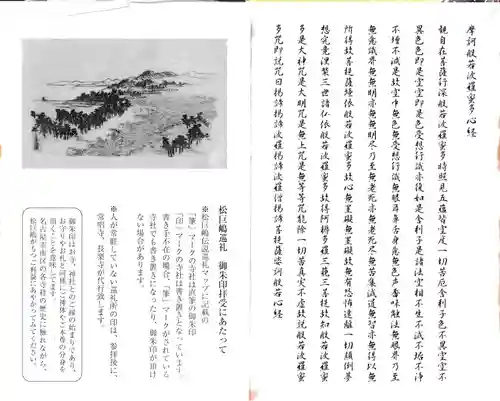 摩訶般若波羅蜜多心経
観自在菩薩行深般若波羅蜜多時照見五蘊皆空度一切苦厄舎利子色不異空空不
異色色即是空空即是色受想行識亦復如是舎利子是諸法空相不生不滅不垢不浄
不増不減是故空中無色無受想行識無眼耳鼻舌身意無色声香味触法無眼界乃至
無意識界無無明亦無無明尽乃至無老死亦無老死尽無苦集滅道無智亦無得以無
所得故菩提薩埵依般若波羅蜜多故心無罣礙無罣礙故無有恐怖遠離一切顛倒夢
想究竟涅槃三世諸仏依般若波羅蜜多故得阿耨多羅三藐三菩提故知般若波羅蜜
多是大神咒是大明咒是無上咒是無等等咒能除一切苦真実不虚故説般若波羅蜜
多咒即説咒曰羯諦羯諦波羅羯諦波羅僧羯諦菩提薩婆訶般若心経
松巨嶋巡礼 御朱印拝受にあたって
※松巨嶋伝説巡礼マップに記載の
「筆」マークの寺社は直筆の御朱印
「印」マークの寺社は書き置きとなっています。
書き手不在の場合、「筆」マークがされている
寺社でも書き置きになったり、御朱印が頂け
ない場合があります。
※人が常駐していない巡礼所の印は、参拝後に、
常宿寺、長楽寺が代行致します。
御朱印はお寺、神社とのご縁の始まりであり、
お守りやお札と同様にご神体やご本尊の分身を
頂くことを意味してます。
名古屋市南区の各寺社の歴史に触れながら、
松巨嶋がもつご利益にあやかってみてください。